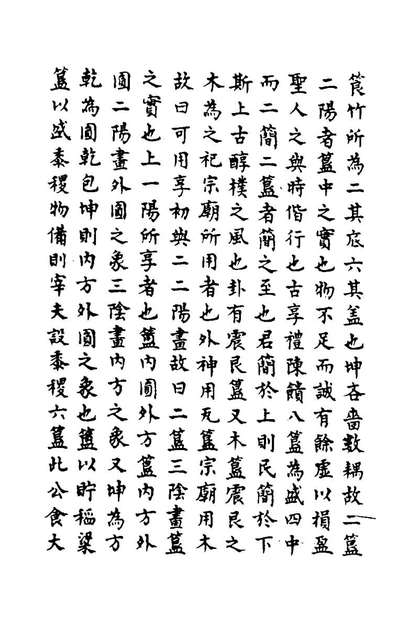 筤竹所為二其底六其盖也坤吝嗇數耦故二簋
二陽者簋中之實也物不足而誠有餘虛以損盈
聖人之與時偕行也古享禮陳饋八簋為盛四中
而二簡二簋者簡之至也君簡於上則民簡於下
斯上古醇樸之風也卦有震艮簋又木簋震艮之
木為之祀宗廟所用者也外神用瓦簋宗廟用木
故曰可用享初與二二陽畫故曰二簋三陰畫簋
之實也上一陽所享者也簠内圎外方簋内方外
圎二陽畫外圎之象三陰畫内方之象又坤為方
乾為圎乾包坤則内方外圎之象也簠以貯稻粱
簋以盛黍稷物備則宰夫設黍稷六簋此公食大